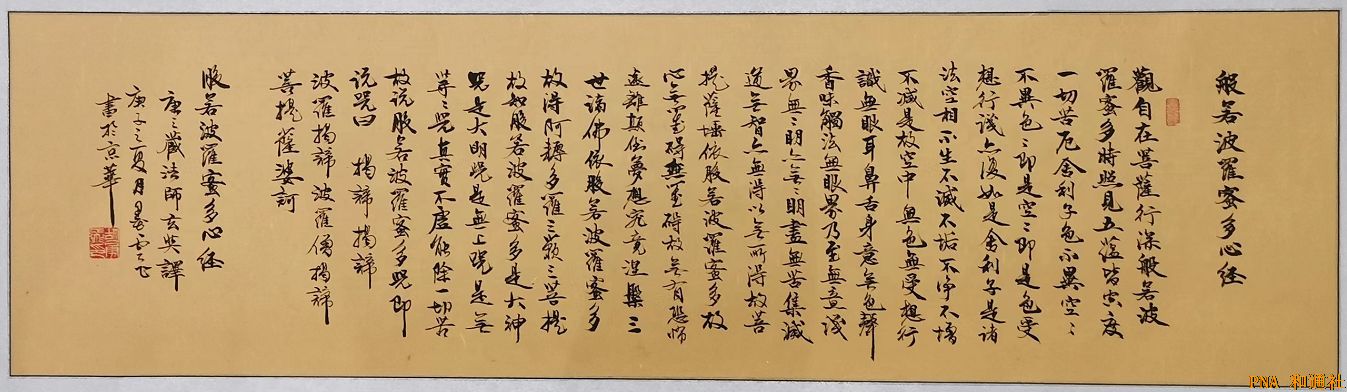 般若波羅蜜多心经
觀自在菩薩行深般若波
羅蜜多時照見五蕴皆空度
一切苦厄舍利子色不異空〻
不異色〻即是空〻即是色受
想行識亦復如是舍利子是诸
法空相不生不滅不垢不净不增
不減是故空中無色無受想行
識無眼耳鼻舌身意無色聲
香味觸法無眼界乃至無意識
界無〻明亦無〻明盡無苦集滅
道无智亦無得以无所得故菩
提薩埵依般若波羅蜜多故
心无罣礙無罣碍故无有恐怖
遠離顛倒夢想究竟涅槃三
世诸佛依般若波羅蜜多
故得阿耨多羅三藐三菩提
故知般若波羅蜜多是大神
咒是大明咒是無上咒是无
等〻咒真實不虚能除一切苦
故说般若波羅蜜多咒即
说咒曰 揭諦 揭諦
波羅揭諦 波羅僧揭諦
菩提薩婆訶
般若波羅蜜多心经
唐三藏法師玄奘譯
庚子之夏月
書於京華
PNA 和通社